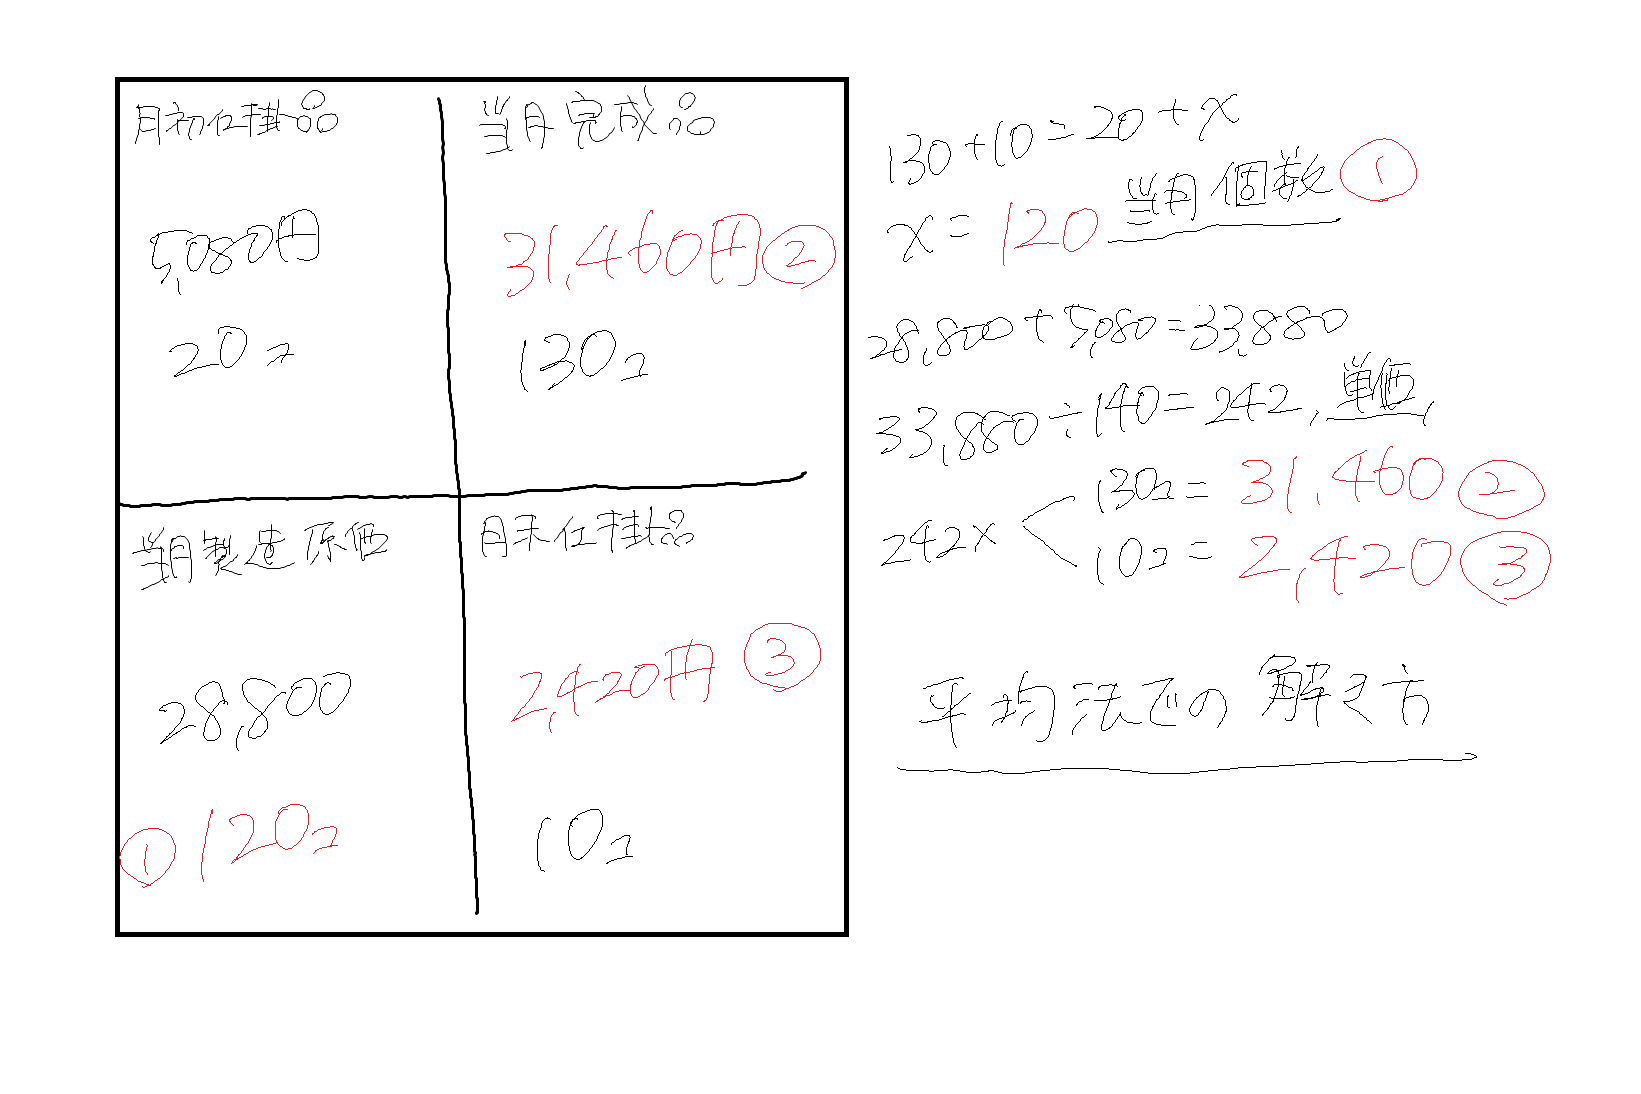 月初仕掛品
5,080円
20コ
当月完成品
31,460円②
130コ
当月製造原価
28,800
①120コ
月末仕掛品
2,420円③
10コ
130+10=20+x
x=120当月個数①
28,800+5,080=33,880
33,880÷140=242,単価,
242×
130コ=31,460②
10コ=2,420③
平均法での解き方